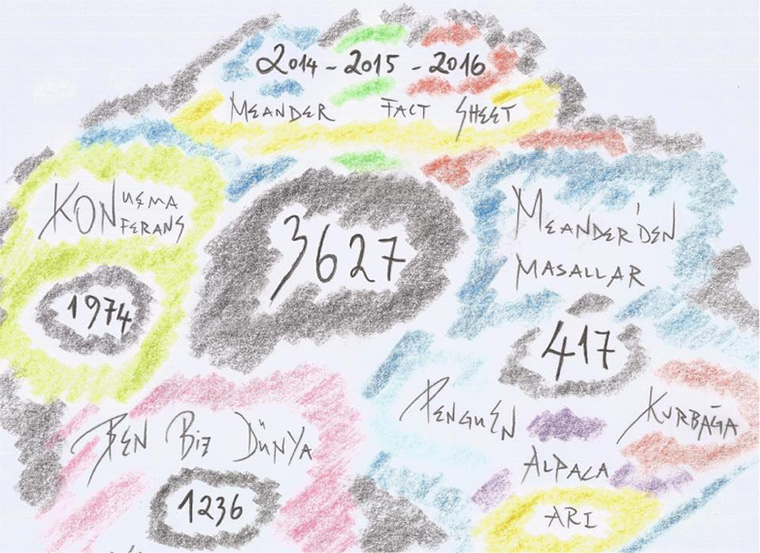 2014 - 2015 - 2016
MEANDER FACT SHEET
KONUŞMA
KONFERANS
1974
3627
MEANDER'DEN
MASALLAR
417
BEN BİZ DÜNYA
1236
PENGUEN
KURBAĞA
ALPACA
ARI